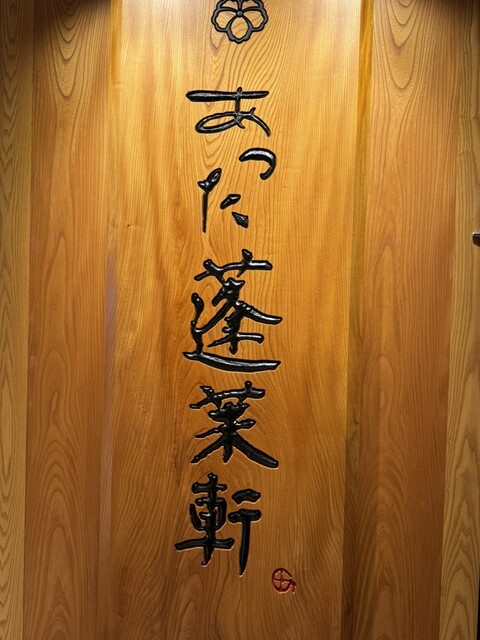 あつた蓬莱軒